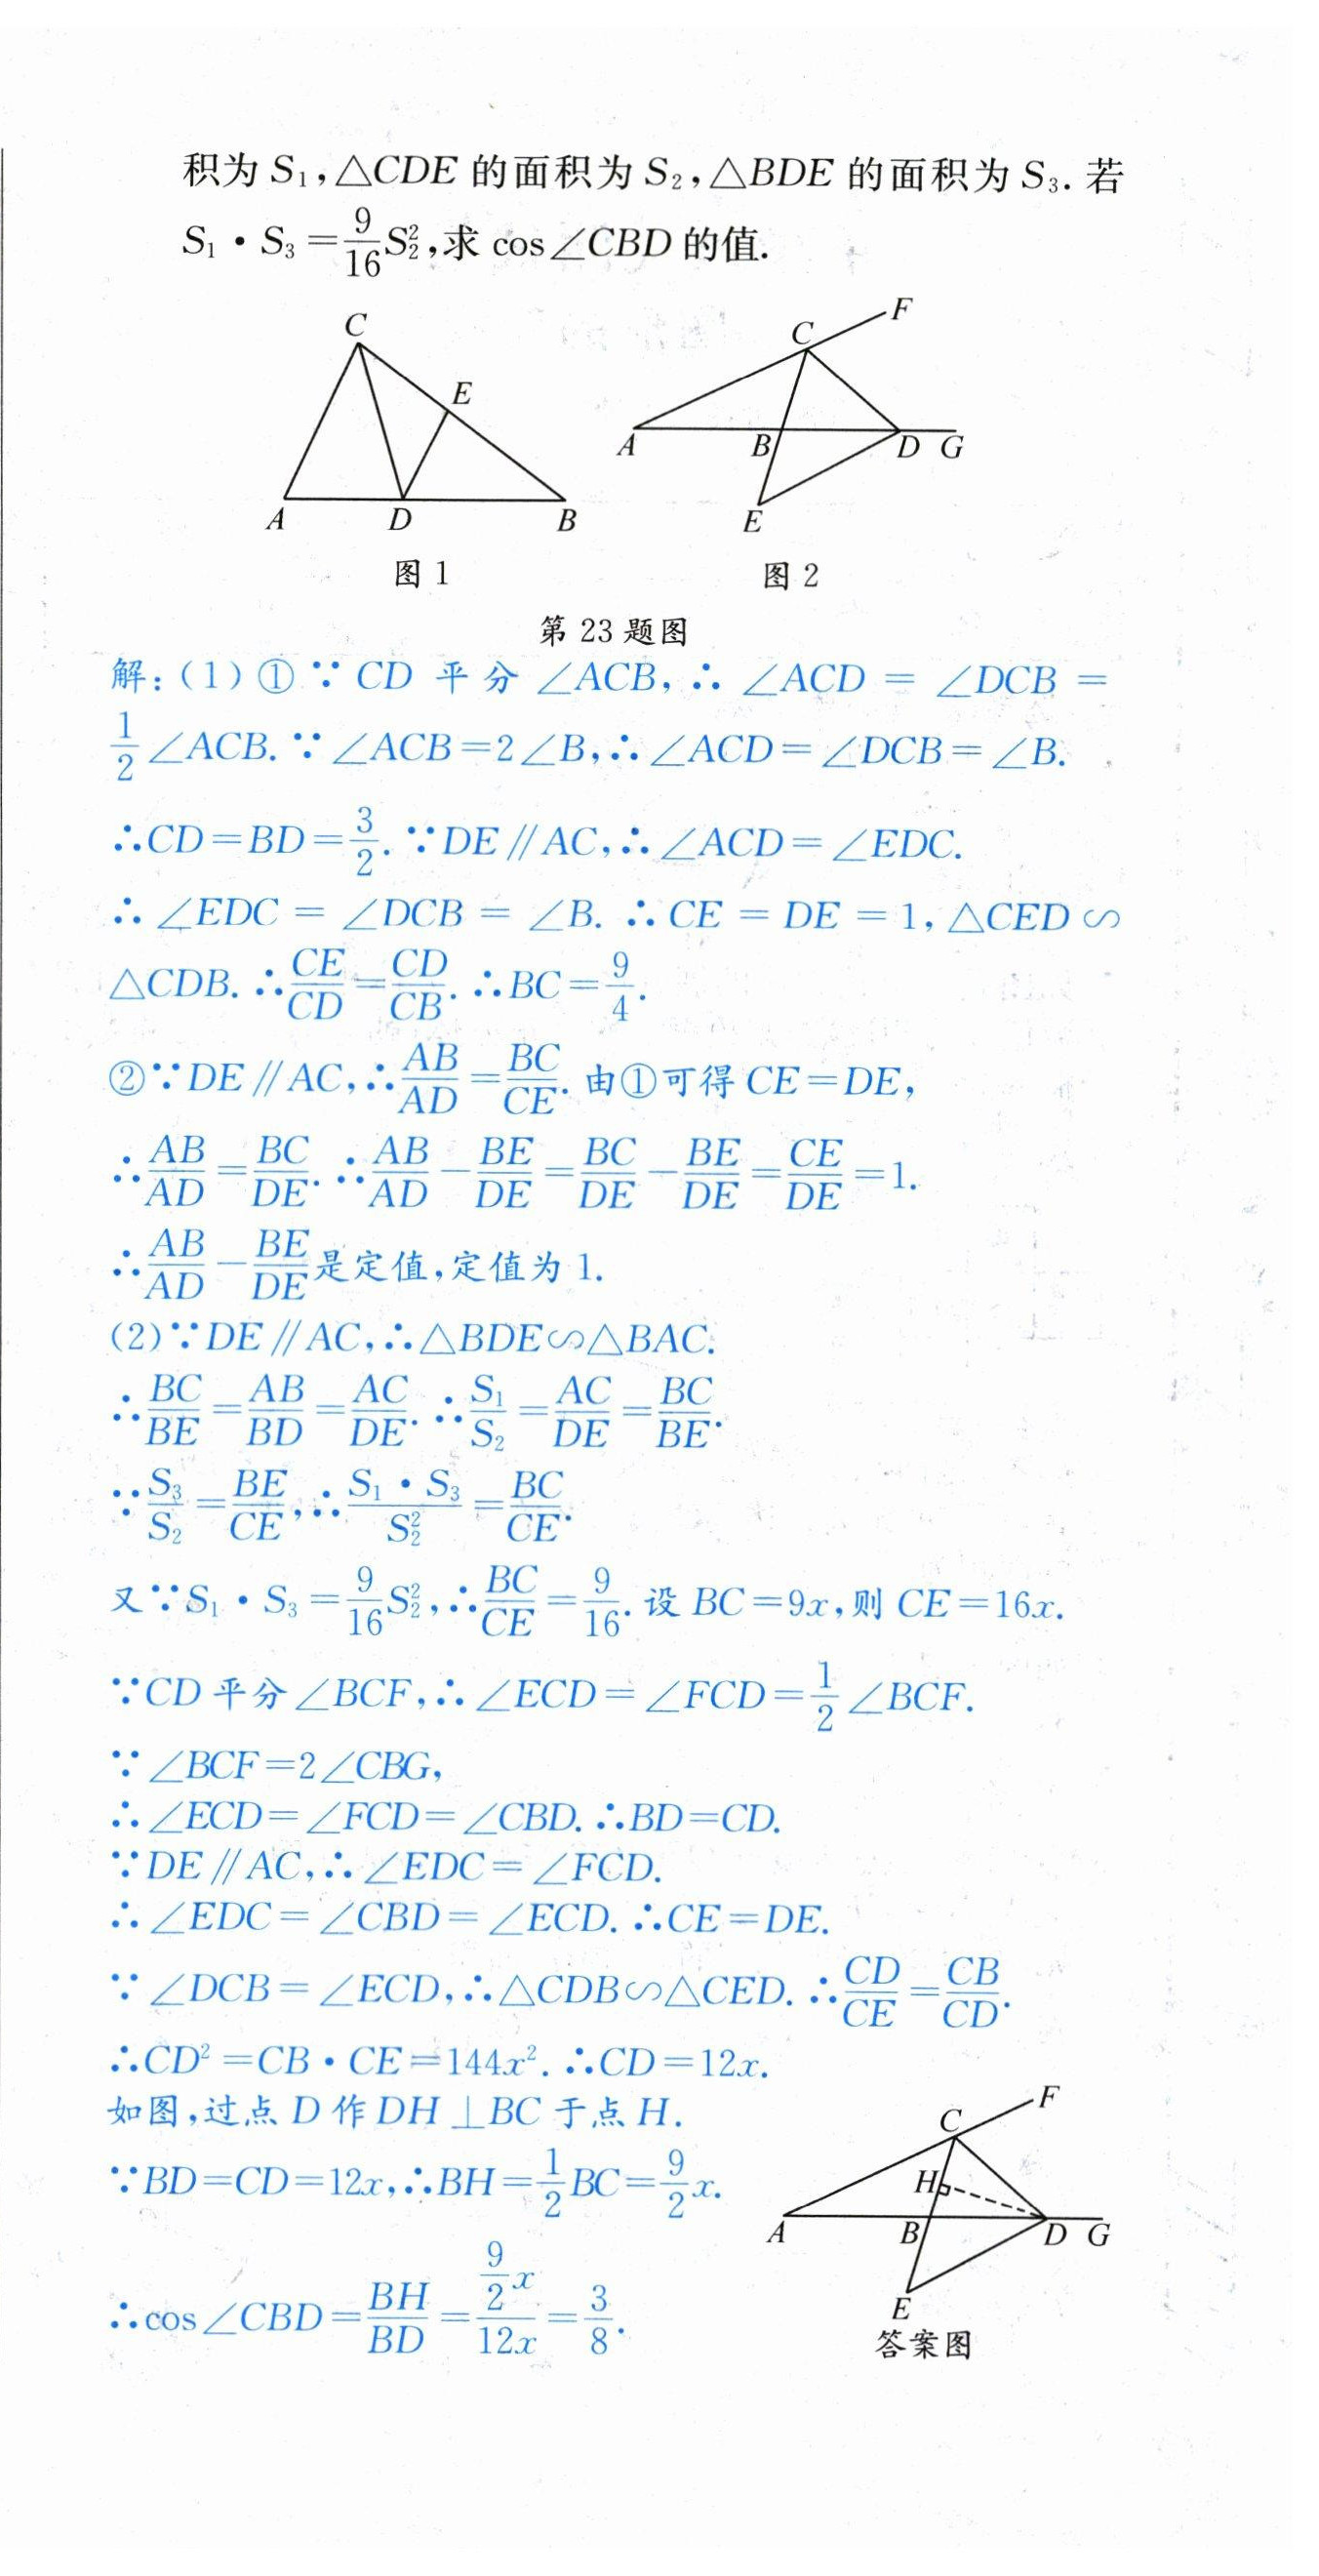 积为 S₁,△CDE 的面积为 S₂,△BDE 的面积为 S₃. 若
S₁·S₃=9/16 S₂²,求 cos∠CBD 的值.
C
E
A
D
B
图 1
F
C
A
B
D
G
E
图 2
第 23 题图
解:(1)①∵CD 平分∠ACB,∴∠ACD=∠DCB=
1/2∠ACB.∵∠ACB=2∠B,∴∠ACD=∠DCB=∠B.
∴CD=BD=3/2.∵DE∥AC,∴∠ACD=∠EDC.
∴∠EDC=∠DCB=∠B.∴CE=DE=1,△CED∽
△CDB.∴CE/CD=CD/CB.∴BC=9/4.
②∵DE∥AC,∴AB/AD=BC/CE.由①可得 CE=DE,
∴AB/AD=BC/DE.∴AB/AD-BE/DE=BC/DE-BE/DE=CE/DE=1.
∴AB/AD-BE/DE是定值,定值为 1.
(2)∵DE∥AC,∴△BDE∽△BAC.
∴BC/BE=AB/BD=AC/DE.∴S₁/S₂=AC/DE=BC/BE.
∵S₃/S₂=BE/CE,∴S₁·S₃/S₂²=BC/CE.
又∵S₁·S₃=9/16 S₂²,∴BC/CE=9/16.设 BC=9x,则 CE=16x.
∵CD 平分∠BCF,∴∠ECD=∠FCD=1/2∠BCF.
∵∠BCF=2∠CBG,
∴∠ECD=∠FCD=∠CBD.∴BD=CD.
∵DE∥AC,∴∠EDC=∠FCD.
∴∠EDC=∠CBD=∠ECD.∴CE=DE.
∵∠DCB=∠ECD,∴△CDB∽△CED.∴CD/CE=CB/CD.
∴CD²=CB·CE=144x².∴CD=12x.
如图,过点 D 作 DH⊥BC 于点 H.
∵BD=CD=12x,∴BH=1/2 BC=9/2 x.
∴cos∠CBD=BH/BD=(9/2 x)/12x=3/8.
F
C
H
A
B
D
G
E
答案图